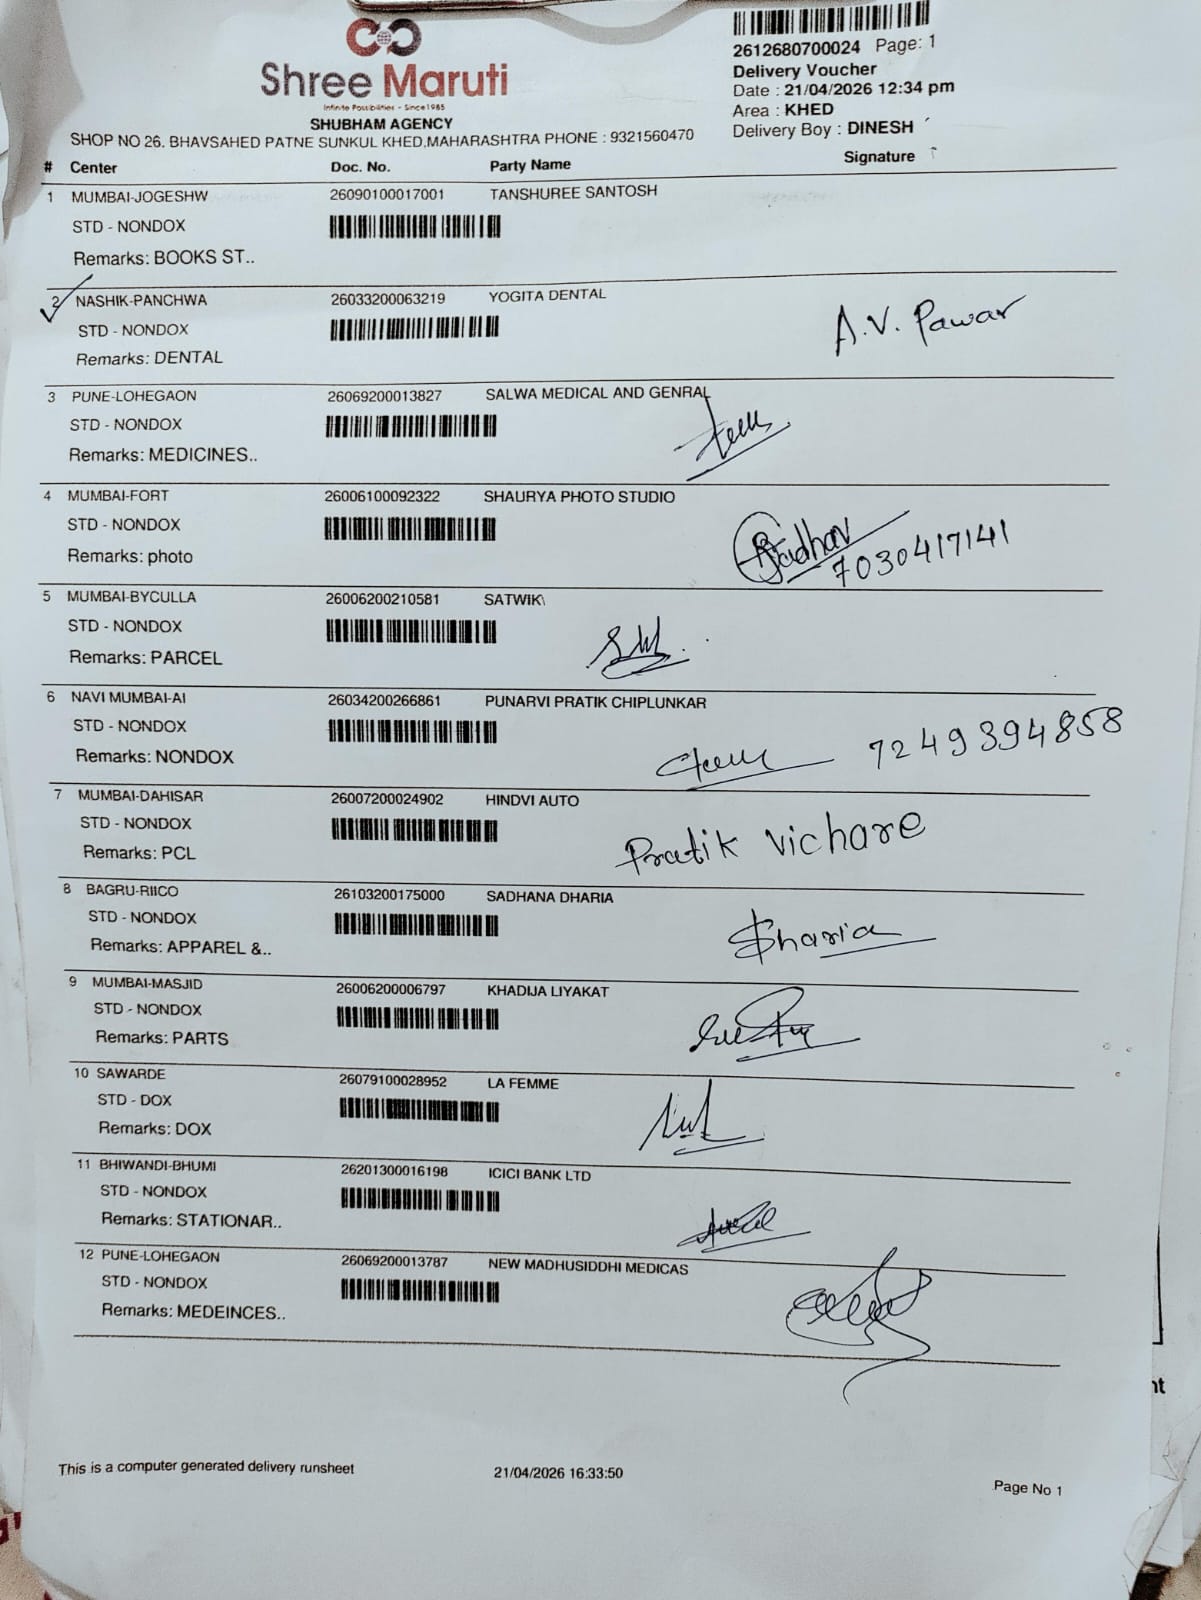 Shree Maruti
Infinite Possibilities - Since 1985
SHUBHAM AGENCY
SHOP NO 26, BHAVSAHED PATNE SUNKUL KHED,MAHARASHTRA PHONE : 9321560470
2612680700024 Page: 1
Delivery Voucher
Date : 21/04/2026 12:34 pm
Area : KHED
Delivery Boy : DINESH
# Center Doc. No. Party Name Signature
1 MUMBAI-JOGESHW 26090100017001 TANSHUREE SANTOSH
STD - NONDOX
Remarks: BOOKS ST..
2 NASHIK-PANCHWA 26033200063219 YOGITA DENTAL
STD - NONDOX A.V. Pawar
Remarks: DENTAL
3 PUNE-LOHEGAON 26069200013827 SALWA MEDICAL AND GENRAL
STD - NONDOX
Remarks: MEDICINES..
4 MUMBAI-FORT 26006100092322 SHAURYA PHOTO STUDIO
STD - NONDOX Jadhav
Remarks: photo 7030417141
5 MUMBAI-BYCULLA 26006200210581 SATWIK\
STD - NONDOX
Remarks: PARCEL
6 NAVI MUMBAI-AI 26034200266861 PUNARVI PRATIK CHIPLUNKAR
STD - NONDOX 7249394858
Remarks: NONDOX
7 MUMBAI-DAHISAR 26007200024902 HINDVI AUTO
STD - NONDOX Pratik Vichare
Remarks: PCL
8 BAGRU-RIICO 26103200175000 SADHANA DHARIA
STD - NONDOX Dharia
Remarks: APPAREL &..
9 MUMBAI-MASJID 26006200006797 KHADIJA LIYAKAT
STD - NONDOX
Remarks: PARTS
10 SAWARDE 26079100028952 LA FEMME
STD - DOX
Remarks: DOX
11 BHIWANDI-BHUMI 26201300016198 ICICI BANK LTD
STD - NONDOX
Remarks: STATIONAR..
12 PUNE-LOHEGAON 26069200013787 NEW MADHUSIDDHI MEDICAS
STD - NONDOX
Remarks: MEDEINCES..
This is a computer generated delivery runsheet 21/04/2026 16:33:50 Page No 1